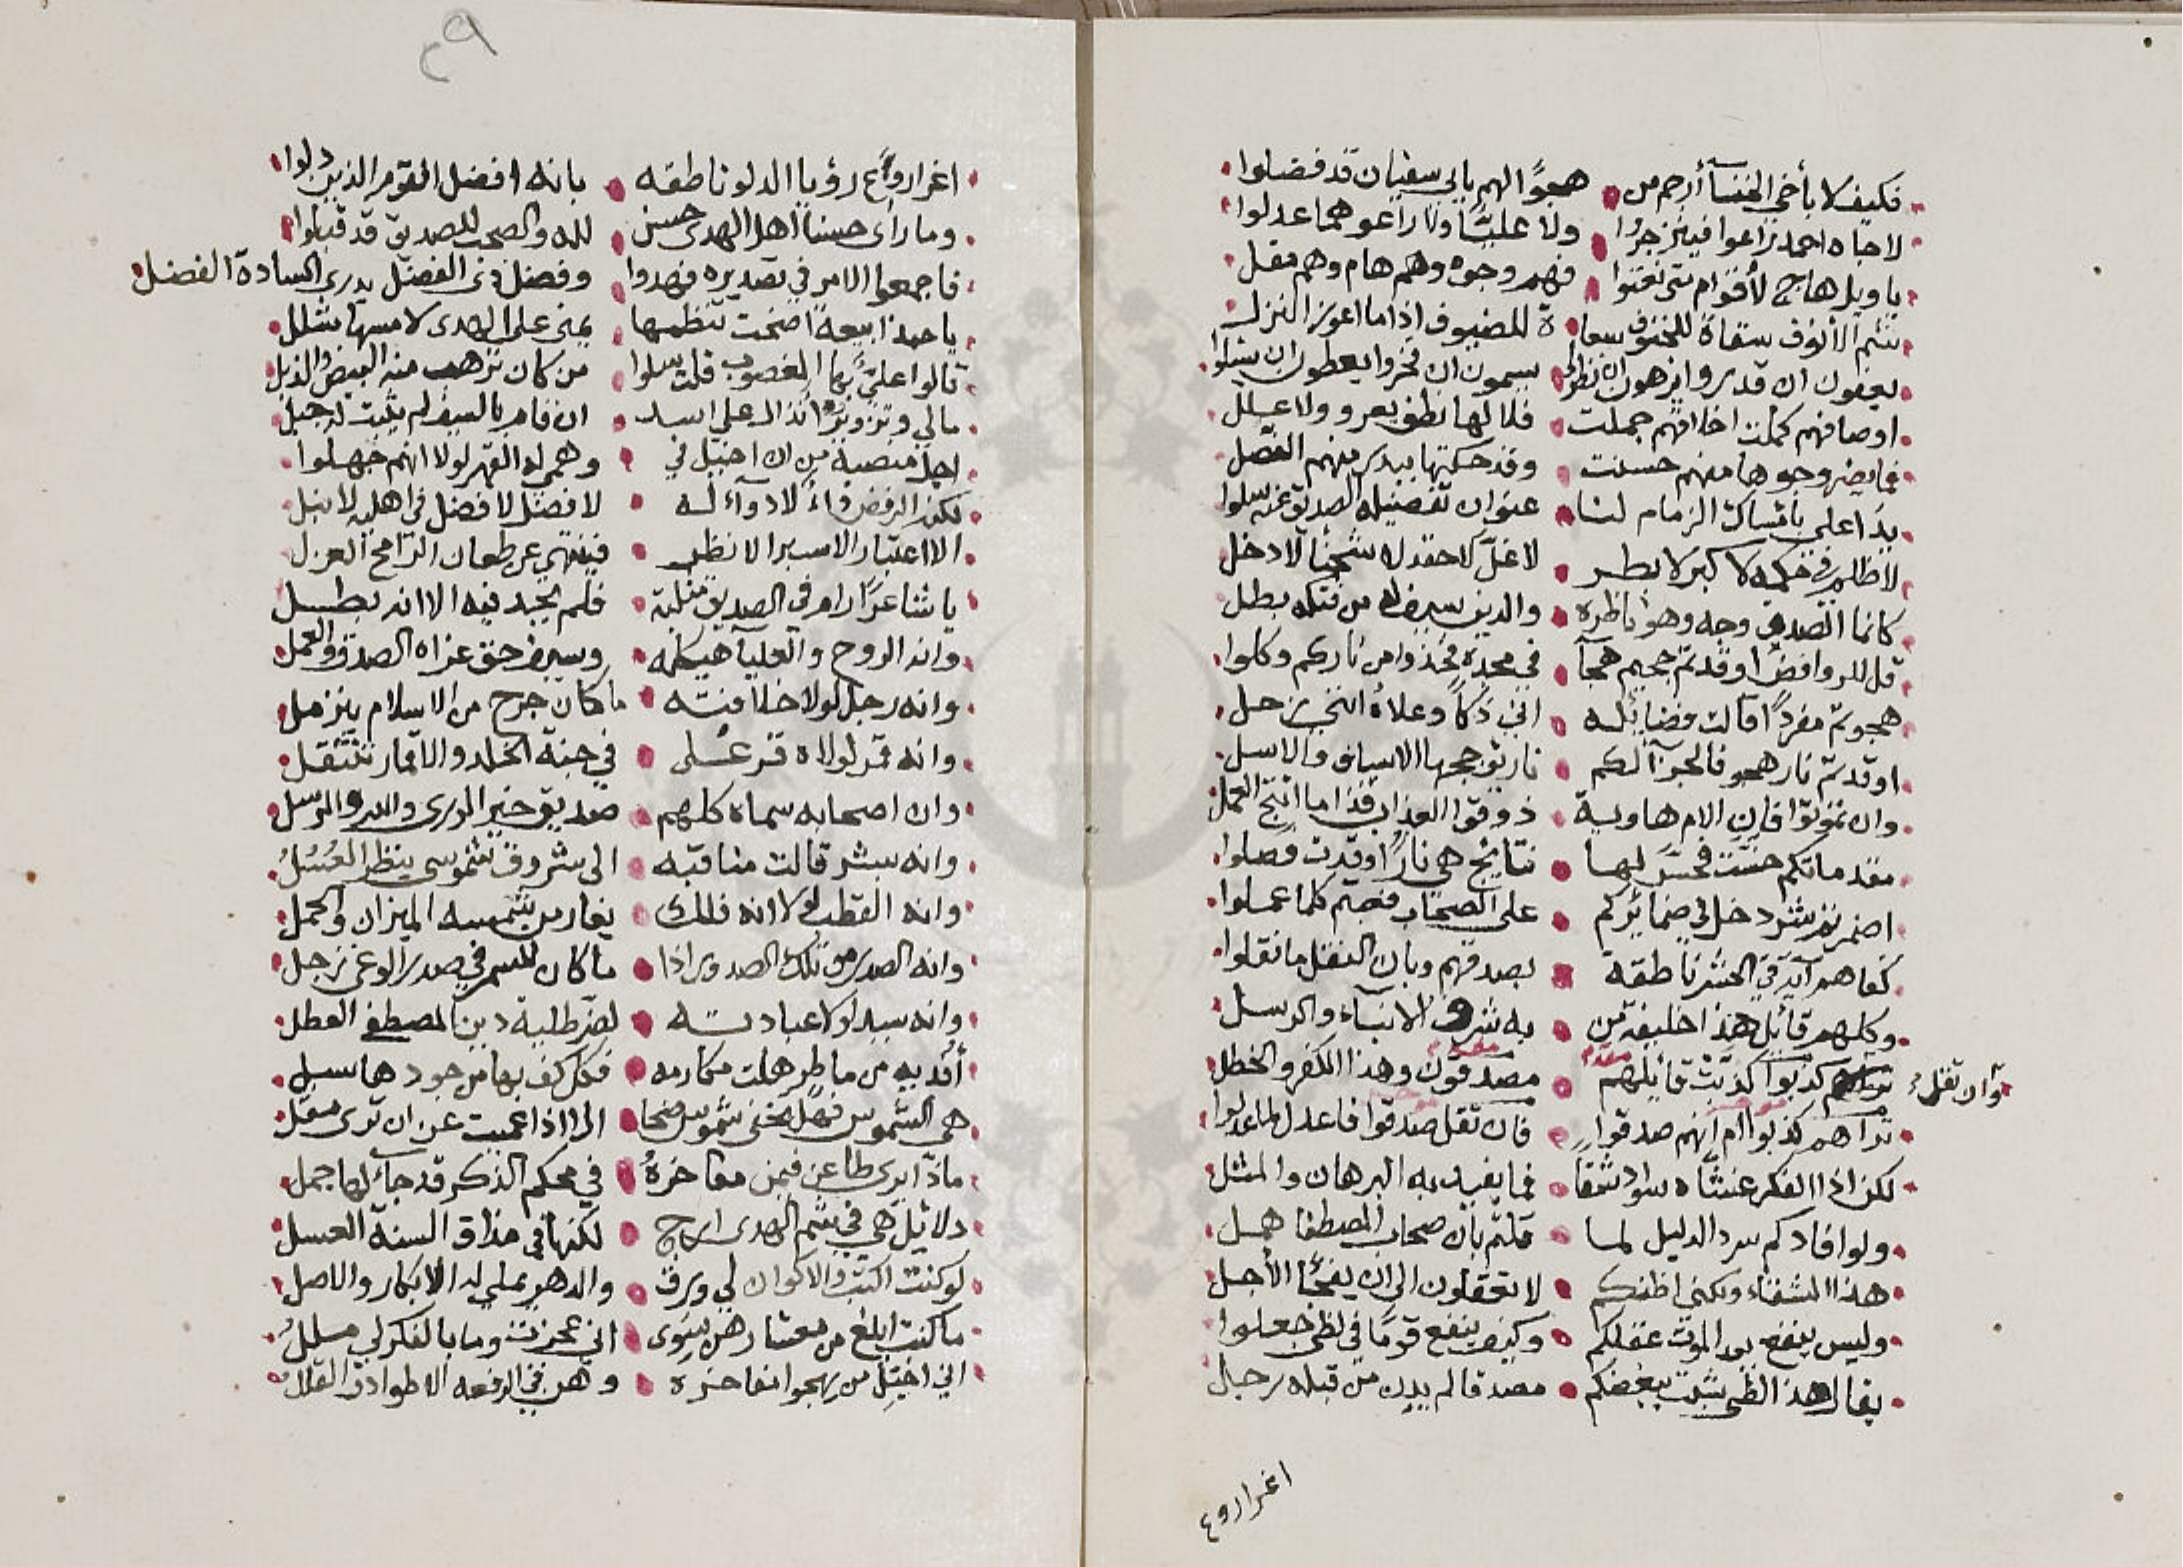 فكيف لا بأخي الخنسآ أرجم من هجوًا الهم بابي سفيان قد فضلوا
لا جاه احمد راعوا فينزجرُا ولا عليًّا ولا راعوهما عدلوا
يا ويل هاج لأقوام متى نعتوا فهم وجوه وهم هام وهم مقل
شم الأنوف سقاة للحتوف سعا ة للضيوف اذا ما اعوز النزل
يعفون ان قدروا يسمون ان فخروا يعطون ان سئلوا
اوصافهم كملت اخلاقهم جملت فلا لها نطق يعرو ولا علل
فما يضر وجوها منهم حسنت وقد حكتها ببدر منهم الفضل
يدا علي بامساك الزمام لنا عنوان تفضيله الصديق عنه سلوا
لا ظلم في حكمه لا كبر لا بطر لا غل لا حقد لا شحنًا لا دخل
كانما الصدق وجه وهو ناظره والدين سيف له من فتكه بطل
قل للروافض اوقدتم جحيم هجآ في مجده فخذوا من ناركم وكلوا
هجوتم مفردًا قالت فضايله اني ذكاً وعلاه انني زحل
اوقدتم نار هجو فالجزآ لكم نار يؤججها الاسياف والاسل
وان تموتوا فان الام هاوية ذوقوا العذاب فذا ما انتج العمل
مقدماتكم خست فخس لها نتايج هي نارًا وقدت فصلوا
اضمرتم شر دخل في ضمايركم على الصحاب فعبتم كلما عملوا
كفاهم آية في الحشر ناطقة بصدقهم وبان النقل ما نقلوا
وكلهم قائل هذا خليفة من به شرف الانبيآء والرسل
وان تقل كذبوا كذبت قائلهم مصدقون وهذا الكفر والخطل
تراهم كذبوا ام انهم صدقوا فان تقل صدقوا فاعدل لما عدلوا
لكن اذا الفكر غشاه سواد شقاً فما يفيد به البرهان والمثل
ولو افادكم سرد الدليل لما قلتم بان صحاب المصطفا همل
هذا الشقاء ولكني اظنكم لا تعقلون الى ان يفجأ الأجل
وليس ينفع بعد الموت عقلكم وكيف ينفع قومًا في لظى جعلوا
يقال هذا الظى شبت ببغضكم مصدقا لم يدن من قبله رجل
اغرا روع
٢٩
اغرا روًع رؤيا الدلو ناطقه بانه افضل القوم الذين دلوا
وما رأى حسنا اهل الهدى حسن لله والصحب للصديق قد قبلوا
فاجمعوا الامر في تصديره فهدوا وفضل ذى الفضل يدرى السادة الفضل
يا حبذا بيعة اضحت تنظمها يمنى على الهدى لا مسها شلل
قالوا علي بها المغصوب قلت سلوا من كان ترهب منه البيض والذبل
مالي وتزويرُ انذال على اسد ان قام بالسيف لم يثبت له جبل
اجل منصبه من ان اخيل في وهم له القهر لولا انهم جهلوا
لكن الرفض داء لا دوآء له لا فضل لا فضل في اهليه لا نبل
الا اعتبار الا سبر الا نظر فينتهي عن طعان الرامح العزل
يا شاعرًا رام في الصديق مثلبة فلم يجد فيه الا انه بطل
وانه الروح والعليآ هيكله وسيف حق عزاه الصدق والعمل
وانه رجل لولا خلافته ما كان جرح من الاسلام يندمل
وانه قمر لولاه قمر على في جنة الخلد والاقمار تنتقل
وان اصحابه سماه كلهم صديق خير الورى والبدو والرسل
وانه بشر قالت مناقبه الى شروق شموسي ينظر
وانه القطب لولا انه فلك يغار من شمسه الميزان والحمل
وانه الصدر من تلك الصدور اذا ما كان للسمر في صدر الوغى زجل
وانه سيد لولا عبادته لضر طلبة دين المصطفى العطل
أفديه من ماطر هلت مكارمه فكل كف بها من جودها سبل
هي الشموس فهل تخفى شموس ضحا الا اذا عميت عن ان ترى مقل
ماذا يرى طاعن فيمن مفاخرهُ في محكم الذكر قد جآء لها جمل
دلائل هي في شم الهدى ارج لكنها في مذاق السنة العسل
لو كنت اكتب والاكوان لي ورق والدهر يملي له الابكار والاصل
ما كنت ابلغ من معشارهن سوى اني عجزت وما بالفكر لي مللُ
اني اخيل من يهجو مفاخره وهن في الرفعه الاطواد والقلل